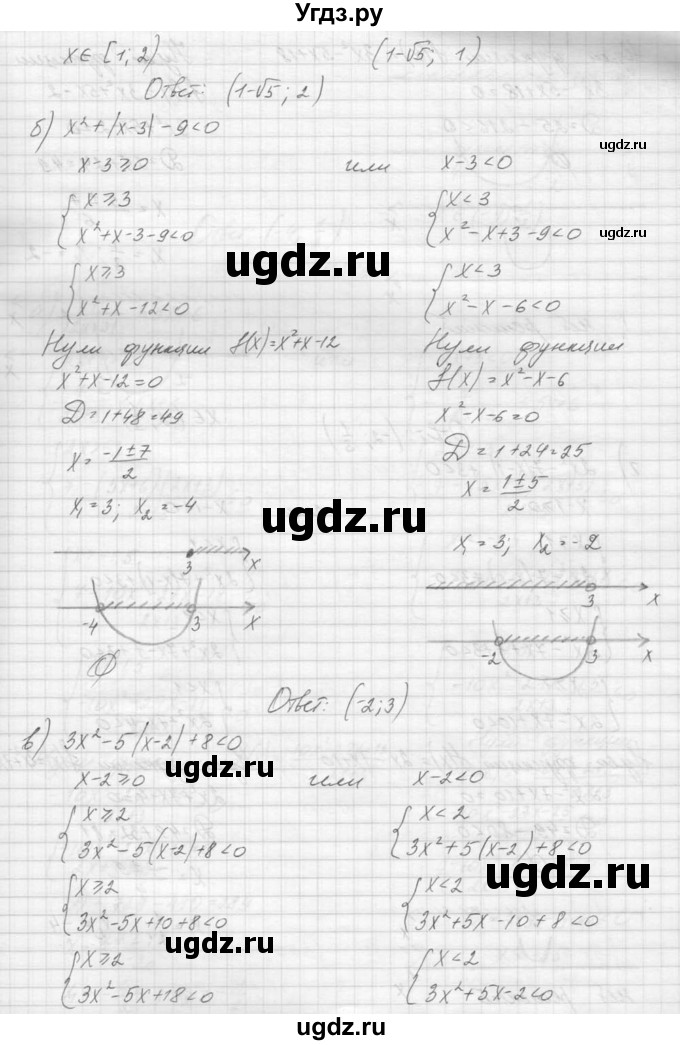 Угдз.ру
x∈ [1; 2) (1-√5; 1)
Ответ: (1-√5; 2)
б) x²+|x-3|-9<0
ugdz.ru
x-3≥0 или x-3<0
x≥3 x<3
x²+x-3-9<0 x²-x+3-9<0
ugdz.ru
ugdz.ru
x≥3 x<3
x²+x-12<0 x²-x-6<0
Нули функции f(x)=x²+x-12 Нули функции
x²+x-12=0 f(x)=x²-x-6
D=1+48=49 x²-x-6=0
x=(-1±7)/2 D=1+24=25
x=(1±5)/2
x₁=3; x₂=-4
ugdz.ru
x₁=3; x₂=-2
3 x
3 x
-4 3 x
-2 3 x
Ø
Ответ: (-2; 3)
в) 3x²-5|x-2|+8<0
ugdz.ru
x-2≥0 или x-2<0
x≥2 x<2
3x²-5(x-2)+8<0 3x²+5(x-2)+8<0
ugdz.ru
x≥2 x<2
3x²-5x+10+8<0 3x²+5x-10+8<0
ugdz.ru
x≥2 x<2
3x²-5x+18<0 3x²+5x-2<0
ugdz.ru